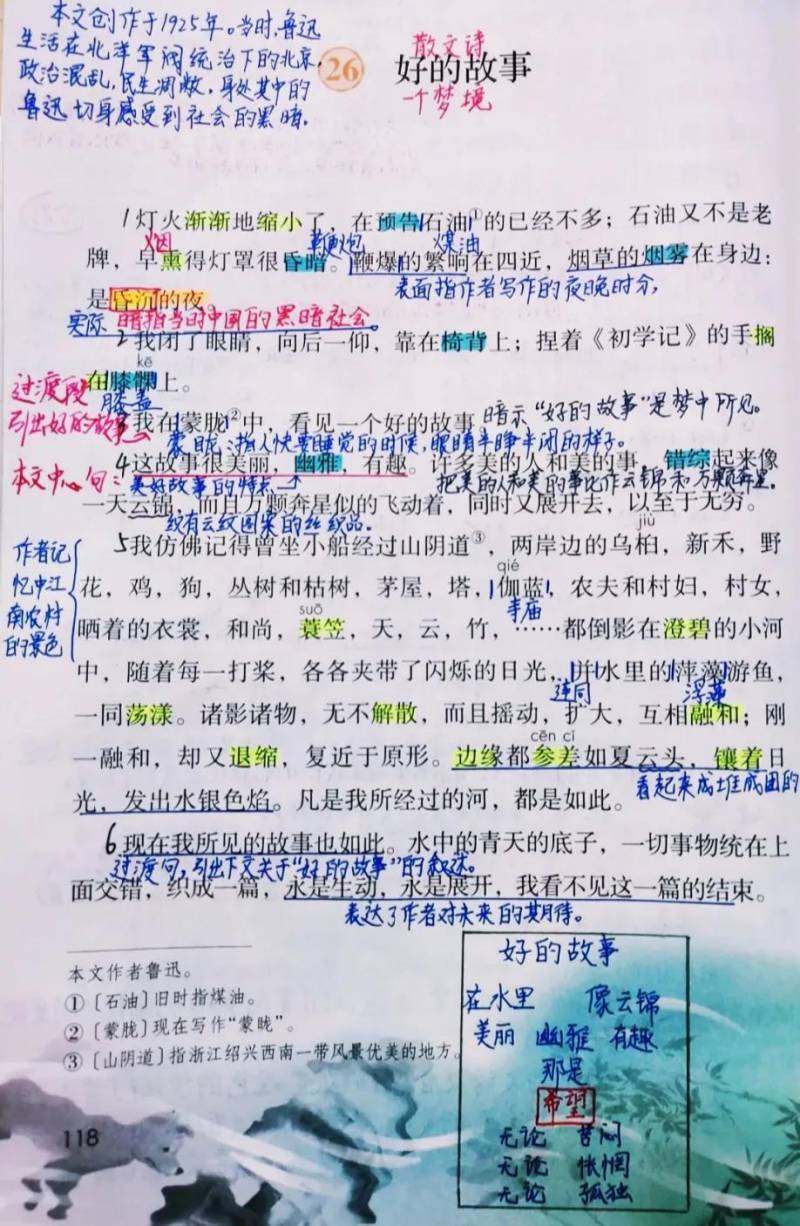 本文创作于1925年。当时,鲁迅
生活在北洋军阀统治下的北京,
政治混乱,民生凋敝,身处其中的
鲁迅切身感受到社会的黑暗。
散文诗
26 好的故事
一个梦境
1灯火渐渐地缩小了，在预告石油①的已经不多；石油又不是老
烟 鞭炮 煤油
牌，早熏得灯罩很昏暗。鞭爆的繁响在四近，烟草的烟雾在身边：
表面指作者写作的夜晚时分,
是昏沉的夜。
实际 暗指当时中国的黑暗社会。
2我闭了眼睛，向后一仰，靠在椅背上；捏着《初学记》的手搁
kē
在膝髁上。
膝盖
过渡段
引出好的故事
我在蒙胧②中，看见一个好的故事
暗示“好的故事”是梦中所见。
蒙眬:指人快要睡觉的时候,眼睛半睁半闭的样子。
本文中心句:
4这故事很美丽，幽雅，有趣。许多美的人和美的事，错综起来像
美好故事的特点
把美的人和美的事比作云锦和万颗奔星。
一天云锦，而且万颗奔星似的飞动着，同时又展开去，以至于无穷。
织有云纹图案的丝织品。
jiù
5我仿佛记得曾坐小船经过山阴道③，两岸边的乌桕，新禾，野
作者记
忆中江
南农村
的景色
qié
花，鸡，狗，丛树和枯树，茅屋，塔，伽蓝，农夫和村妇，村女，
suō
寺庙
晒着的衣裳，和尚，蓑笠，天，云，竹，……都倒影在澄碧的小河
中，随着每一打桨，各各夹带了闪烁的日光，并水里的萍藻游鱼，
连同 浮萍
一同荡漾。诸影诸物，无不解散，而且摇动，扩大，互相融和；刚
cēn cī
一融和，却又退缩，复近于原形。边缘都参差如夏云头，镶着日
看起来成堆成团的
光，发出水银色焰。凡是我所经过的河，都是如此。
6现在我所见的故事也如此。水中的青天的底子，一切事物统在上
过渡句,引出下文关于“好的故事”的叙述。
面交错，织成一篇，永是生动，永是展开，我看不见这一篇的结束。
表达了作者对未来的期待。
本文作者鲁迅。
①〔石油〕旧时指煤油。
②〔蒙胧〕现在写作“蒙眬”。
③〔山阴道〕指浙江绍兴西南一带风景优美的地方。
118
好的故事
在水里 像云锦
美丽 幽雅 有趣
那是
希望
无论 苦闷
无论 惆怅
无论 孤独